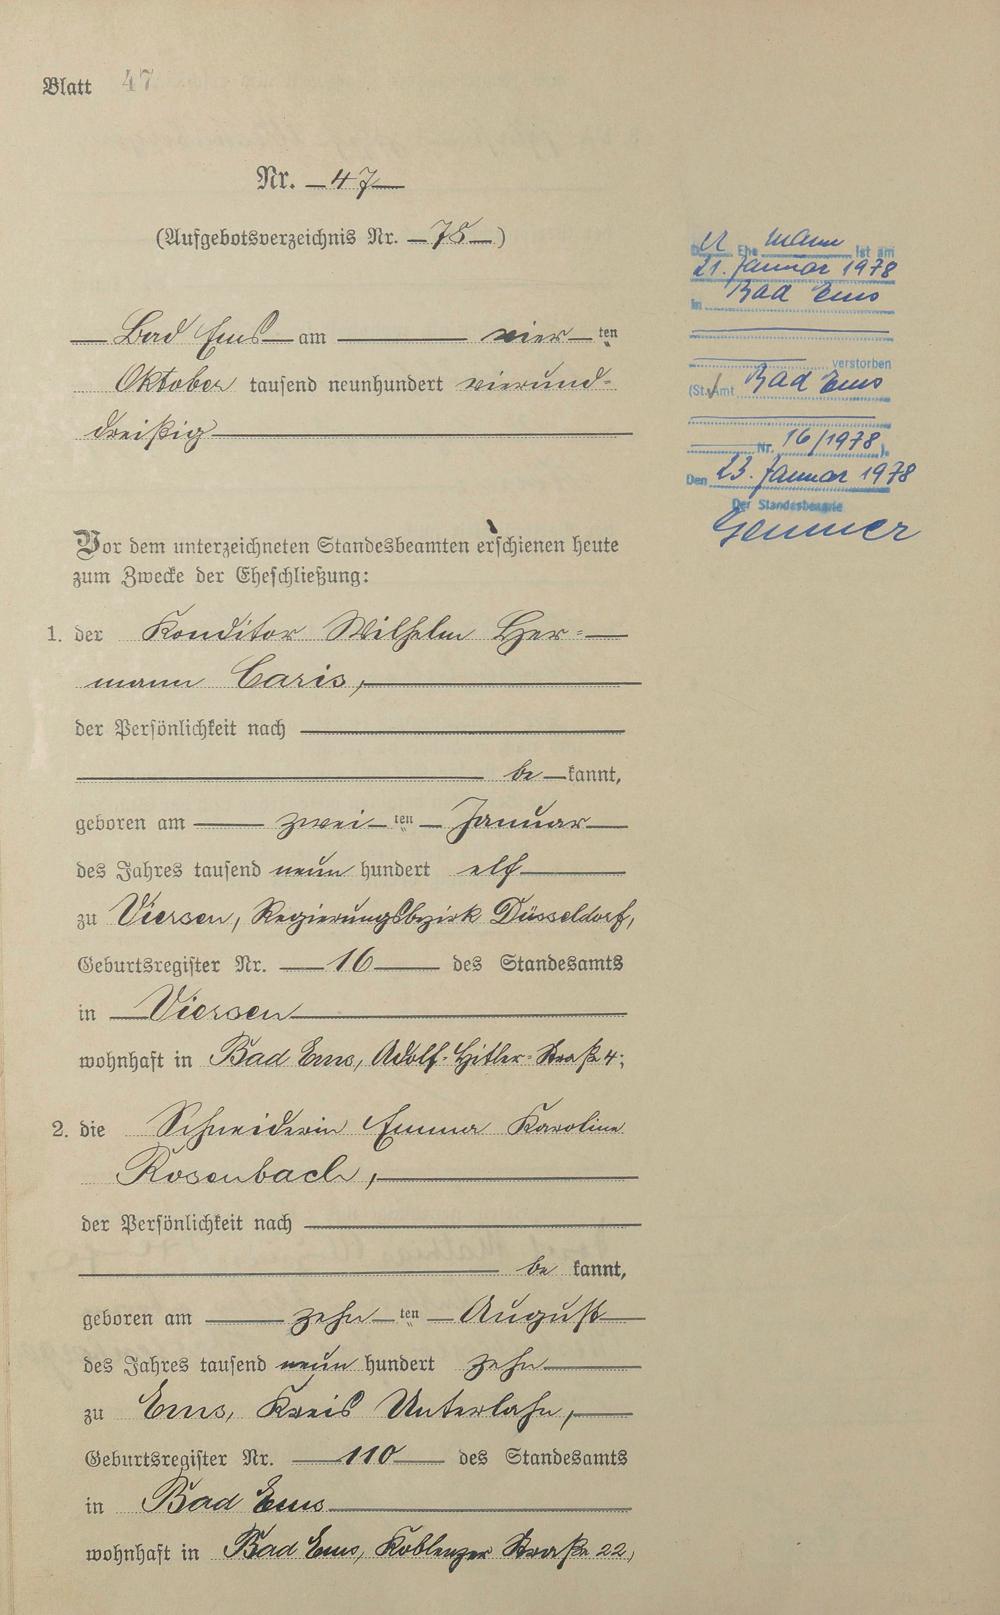 Blatt 47
Nr. 47
(Aufgebotsverzeichnis Nr. 78)
Bad Ems am vier ten
Oktober tausend neunhundert vierund-
dreißig
Vor dem unterzeichneten Standesbeamten erschienen heute
zum Zwecke der Eheschließung:
1. der Konditor Wilhelm Her-
mann Caris,
der Persönlichkeit nach
be kannt,
geboren am zwei ten Januar
des Jahres tausend neun hundert elf
zu Viersen, Regierungsbezirk Düsseldorf,
Geburtsregister Nr. 16 des Standesamts
in Viersen
wohnhaft in Bad Ems, Adolf-Hitler-Straße 4;
2. die Schneiderin Emma Karoline
Rosenbach,
der Persönlichkeit nach
be kannt,
geboren am zehn ten August
des Jahres tausend neun hundert zehn
zu Ems, Kreis Unterlahn,
Geburtsregister Nr. 110 des Standesamts
in Bad Ems
wohnhaft in Bad Ems, Koblenzer Straße 22,
Der Ehe mann ist am
21. Januar 1978
in Bad Ems
verstorben
(St.Amt Bad Ems
Nr. 16/1978).
Den 23. Januar 1978
Der Standesbeamte